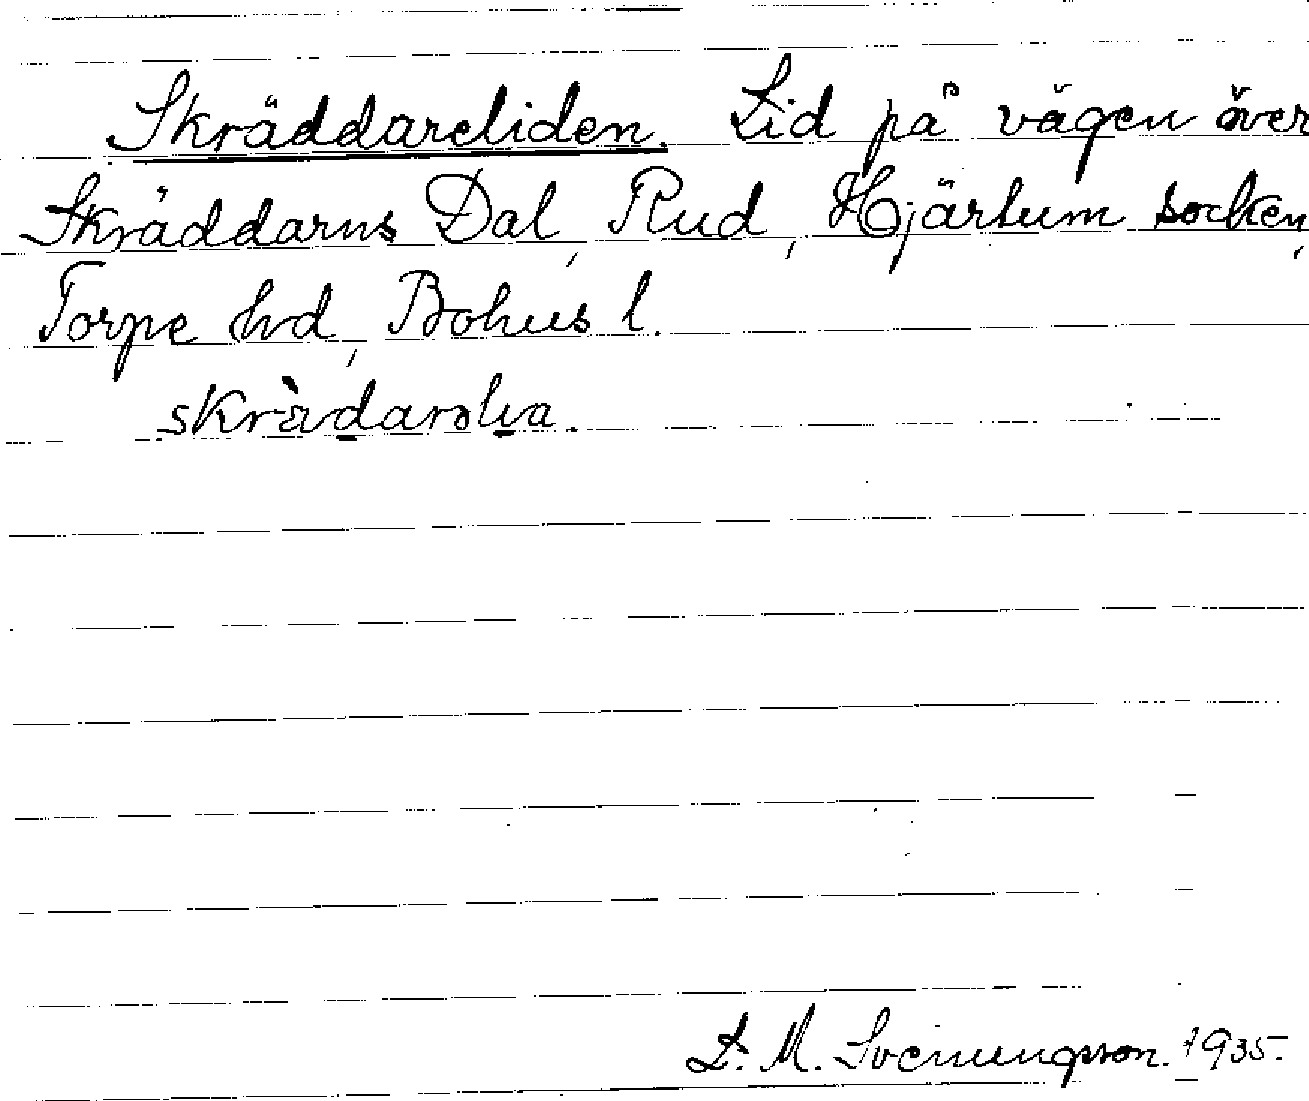 Skräddareliden. Lid på vägen över
Skräddarns Dal, Rud, Hjärtum socken,
Torpe hd, Bohus l.
D. M. Svenungsson. 1935.